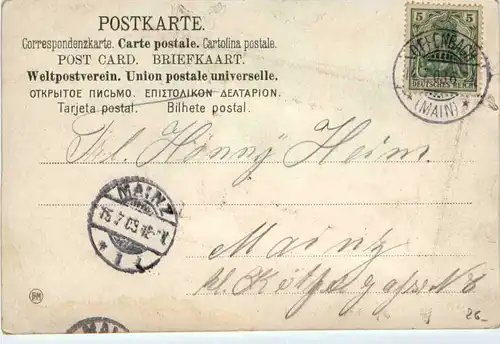 POSTKARTE.
Correspondenzkarte. Carte postale. Cartolina postale.
POST CARD. BRIEFKAART.
Weltpostverein. Union postale universelle.
ОТКРЫТОЕ ПИСЬМО. ΕΠΙΣΤΟΛΙΚΟΝ ΔΕΛΤΑΡΙΟΝ.
Tarjeta postal. Bilhete postal.
5 5
DEUTSCHES REICH
OFFENBACH
* (MAIN) *
Frl. Hönny Heim.
MAINZ
15.7.03.
* 1
Mainz
kl.
MAINZ
26-